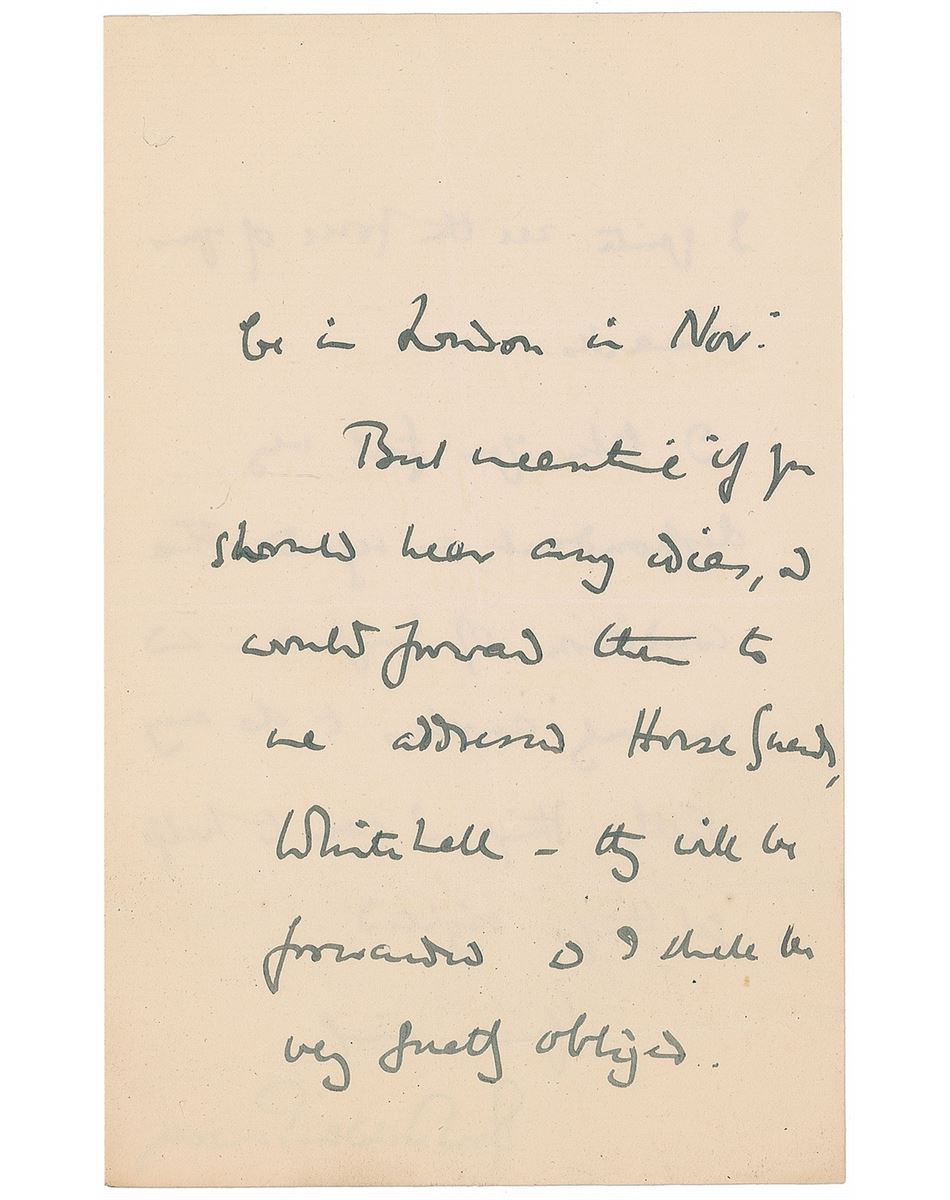 be in London in Nov:
But meantime if you
should hear any ideas, &
would forward them to
me addressed Horse Guards,
Whitehall – they will be
forwarded & I shall be
very greatly obliged.